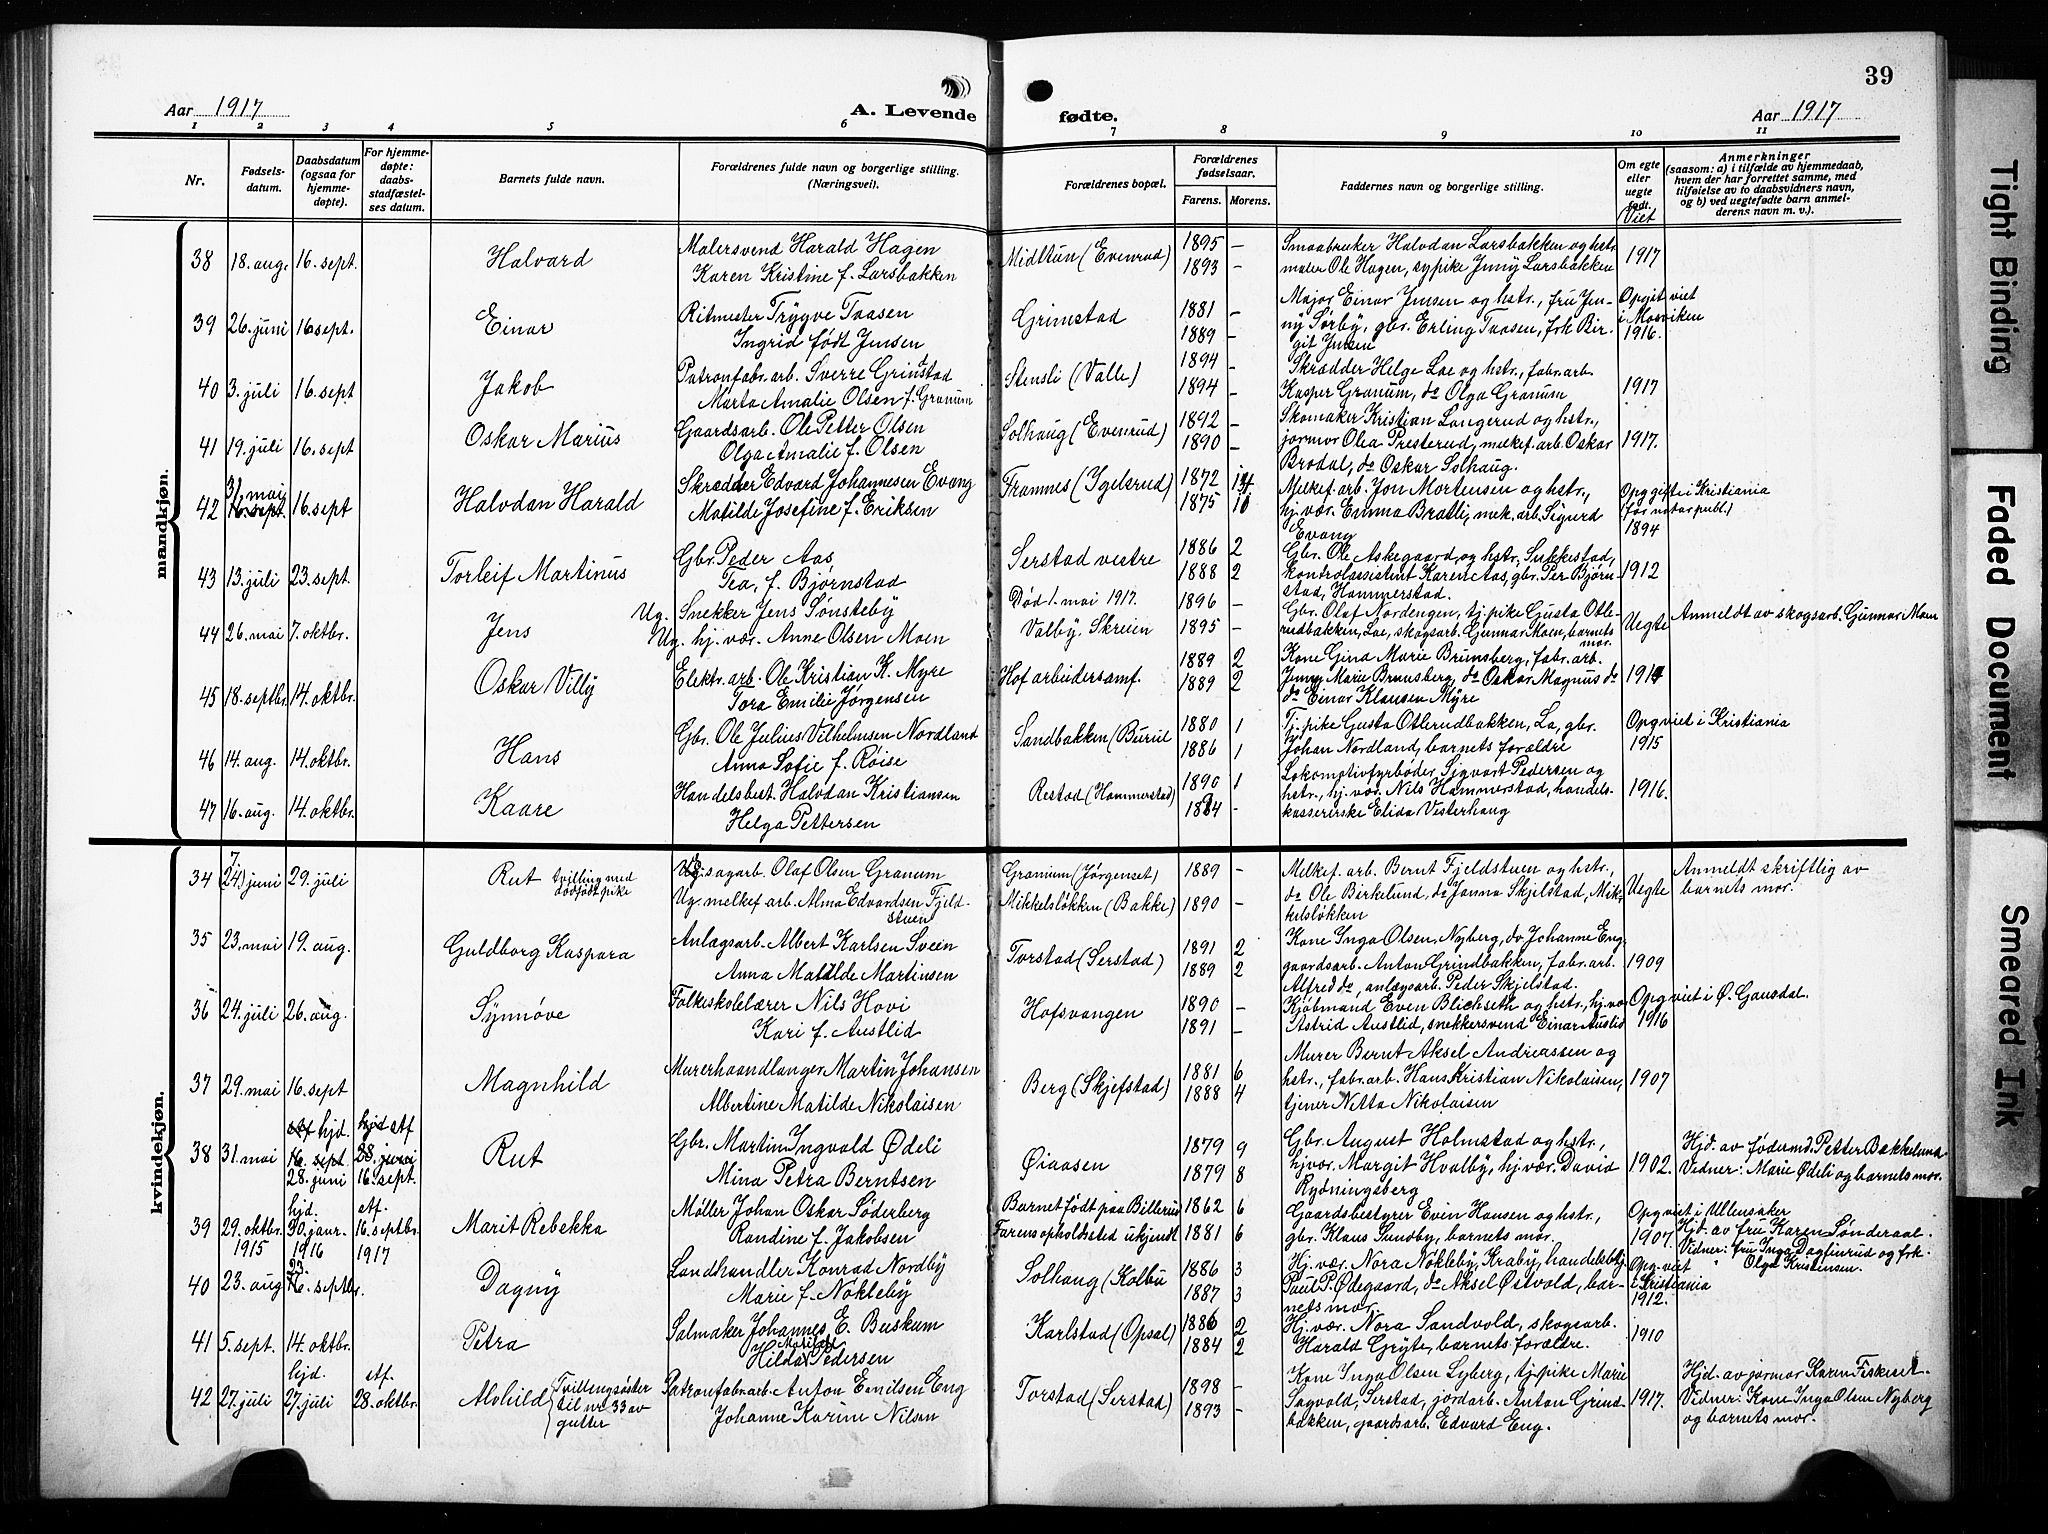 39
Aar 1917
A. Levende
fødte.
Aar 1917
1 2 3 4 5 6 7 8 9 10 11
Nr.
Fødsels-
datum.
Daabsdatum
(ogsaa for
hjemme-
døpte).
For hjemme-
døpte:
daabs-
stadfæstel-
ses datum.
Barnets fulde navn.
Forældrenes fulde navn og borgerlige stilling.
(Næringsveil.
Forældrenes bopæl.
Forældrenes
fødselsaar.
Farens. Morens.
Faddernes navn og borgerlige stilling.
Om egte
eller
uegte
født.
Viet
Anmerkninger
(saasom: a) i tilfælde av hjemmedaab,
hvem der har forrettet samme, med
tilføielse av to daabsvidners navn,
og b) ved uegtefødte barn anmel-
derens navn m. v.).
mandkjøn.
38 18. aug. 16. sept. Halvard Malersvend Harald Hagen Midtun (Evenrud) 1895 – Smaabruker Halvdan Larsbakken og hstr. 1917
Karen Kristine f. Larsbakken 1893 – maler Ole Hagen, sypike Jenny Larsbakken
39 26. juni 16 sept. Einar Ritmester Trygve Taasen Grimstad 1881 – Major Einar Jensen og hstr., fru Jen- Opg. at viet
Ingrid født Jensen 1889 – ny Sørby, gbr. Erling Taasen, frk Bir- i Mosviken
git Jensen 1916.
40 3. juli 16. sept Jakob Patronfabr. arb. Sverre Grinstad Stensli (Valle) 1894 – Skrædder Helge Loe og hstr., fabr. arb. 1917
Marta Amalie Olsen f. Granum 1894 – Kasper Granum, do Olga Granum
41 19. juli 16. sept Oskar Marius Gaardsarb. Ole Petter Olsen Solhaug (Evenrud) 1892 – Skomaker Kristian Langerud og hstr., 1917.
Olga Amalie f. Olsen 1890 – jormor Olea Presterud, melkef. arb Oskar
Brodal, do Oskar Solhaug.
42 31. maj 16. sept Halvdan Harald Skrædder Edvard Johannesen Evang Framnes (Igelsrud) 1872 Melkef. arb. Jon Mortensen og hstr., Opg. gift i Kristiania
16. sept. Matilde Josefine f. Eriksen 1875 hj. vær. Emma Bratli, mek. arb. Sigurd (for notar publ.)
Evang 1894
43 13. juli 23. sept. Torleif Martinus Gbr. Peder Aas, Serstad vestre 1886 2 Gbr. Ole Askegaard og hstr., Sukkestad, 1912
Tea, f. Bjørnstad 1888 2 kontrolassistent Karen Aas, gbr. Per Bjørn
stad, Hammerstad.
44 26. mai 7. oktbr. Jens Ug. Snekker Jens Sønsteby Død 1. mai 1917. 1896 – Gbr. Olaf Nordengen, tj. pike Gusta Otle- Uegte Anmeldt av skogsarb. Gunnar Moen
Ug. hj. vær. Anne Olsen Moen Valby, Skreien 1895 – rudbakken, Loe, skogsarb. Gunnar Moen, barnets
mor.
45 18. septbr. 14. oktbr. Oskar Villy Elektr. arb. Ole Kristian K. Myre Hof arbeidersamf. 1889 2 Kone Gina Marie Brunsberg, fabr. arb.
Tora Emilie Jørgensen 1889 2 Jenny Marie Brunsberg, do Oskar Magnus do
do Einar Klausen Myre
46 14. aug. 14. oktbr. Hans Gbr. Ole Julius Vilhelmsen Nordland Sandbakken (Buruil 1880 1 Tj. pike Gusta Otlerudbakken, Lo, gbr. Opg viet i Kristiania
Anna Sofie f. Røise 1886 1 Johan Nordland, barnets forældre 1915
47 16. aug. 14. oktbr. Kaare Handelsbest. Halvdan Kristiansen Restad (Hammerstad) 1890 1 Lokomotivfyrbøder Sigvart Pedersen og 1916.
Helga Pettersen – hstr., hj. vær. Nils Hammerstad, handels-
kassererske Elida Vesterhaug
kvindekjøn.
34 7. (24) juni 29. juli Rut tvilling med dødfødt pike Ug. sagarb. Olaf Olsen Granum Granum (Jørgenset) 1889 – Melkef. arb. Bernt Fjeldstuen og hstr., Uegte Anmeldt skriftlig av
Ug. melkef arb. Alma Edvardsen Fjeld- Mikkelsløkken (Bakke) 1890 – do Ole Birkelund, do Janna Skjelstad, Mik- barnets mor.
stuen kelsløkken
35 23. mai 19. aug. Guldborg Kaspara Anlægsarb. Albert Karlsen Svein Torstad (Serstad) 1891 2 Kone Inga Olsen, Nyberg, do Johanne Eng 1909
Anna Matilde Martinsen 1889 2 gaardsarb. Anton Grindbakken, fabr. arb.
Alfred do, anlægsarb. Peder Skjelstad.
36 24. juli 26. aug. Synnøve Folkeskolelærer Nils Hovi Hofsvangen 1890 – Kjøbmand Even Blichseth og hstr., hj. vær Opg viet i Ø. Gausdal.
Kari f. Austlid 1891 – Astrid Austlid, snekkersvend Einar Austlid 1916
37 29. mai 16. sept Magnhild Murerhaandlanger Martin Johansen Berg (Skjefstad) 1881 6 Murer Bernt Aksel Andreassen og 1907
Albertine Matilde Nikolaisen 1888 4 hstr., fabr. arb. Hans Kristian Nikolaisen,
tjener Netta Nikolaisen
38 31. mai stf hjd. hjd stf Rut Gbr. Martin Ingvald Ødeli Øiaasen 1879 9 Gbr. August Holmstad og hstr., 1902. Hjd. av føderm. Petter Bakkelund
16. sept 28. juni Mina Petra Berntsen 1879 8 hj vær. Margit Hvalby, hj. vær. David Vidner: Marie Ødeli og barnets mor.
28. juni 16. sept. Rydningsberg
39 29. oktbr. 1915 hjd. 30. jaur. 1916 stf. 16. septbr. 1917 Marit Rebekka Møller Johan Oskar Søderberg Barnet født paa Billerud 1862 6 Gaardsbestyrer Even Hansen og hstr., Opg viet i Ullensaker
Randine f. Jakobsen Farens opholdssted ukjendt 1881 6 gbr. Klaus Sundby, barnets mor. 1907. Hjd. av fru Karen Sønderaal.
Vidner: fru Inga Dagfinrud og frk.
" Olga Kristensen.
40 23. aug 23. 16. septbr. Dagny Landhandler Konrad Nordby Solhaug (Kolbu 1886 3 Hj. vær. Nora Nøkleby, Kraby, handelsbtj. Opg. viet
Marie f. Nøkleby 1887 3 Paul P. Ødegaard, do Aksel Østvold, bar- i Kristiania
nets mor 1912.
41 5. sept. 14. oktbr. Petra Salmaker Johannes E. Buskum Karlstad (Opsal) 1886 2 Hj. vær. Nora Sandvold, skogsarb. 1910
Hilda Matilde Pedersen 1884 2 Harald Gryte, barnets forældre.
42 27. juli hjd. 27. juli stf. 28. oktbr. Alvhild (Tvillingsøster til nr. 33 av gutter Patronfabr. arb. Anton Emilsen Eng Torstad (Serstad) 1898 – Kone Inga Olsen Lyberg, tj. pike Marie 1917. Hjd. av jormor Karen Fiskeset.
Johanne Karine Nilsen 1893 – Sagvold, Serstad, jordarb. Anton Grind- Vidner: Kone Inga Olsen Nyberg
bakken, gaardsarb. Edvard Eng. og barnets mor.
Tight Binding
Faded Document
Smeared Ink